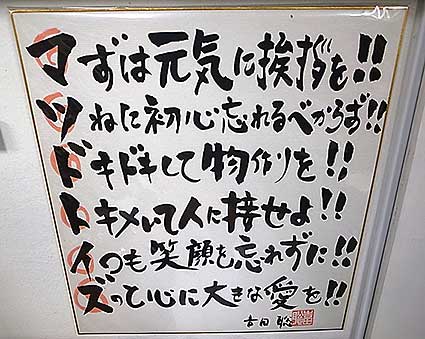 マずは元気に挨拶を!!
ツねに初心忘れるべからず!!
ドキドキして物作りを!!
トキメいて人に接せよ!!
イつも笑顔を忘れずに!!
ズっと心に大きな愛を!!
吉田 聡